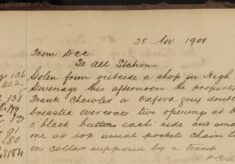 28 Nov 1901
From Dcc
To All Stations
Stolen from outside a shop in High
Stevenage this afternoon the property
Frank Chowler a Oxford grey double
breasted overcoat two openings at
black buttons each side and
one at top usual pockets chain
on collar supposed by a tramp
136
202
138